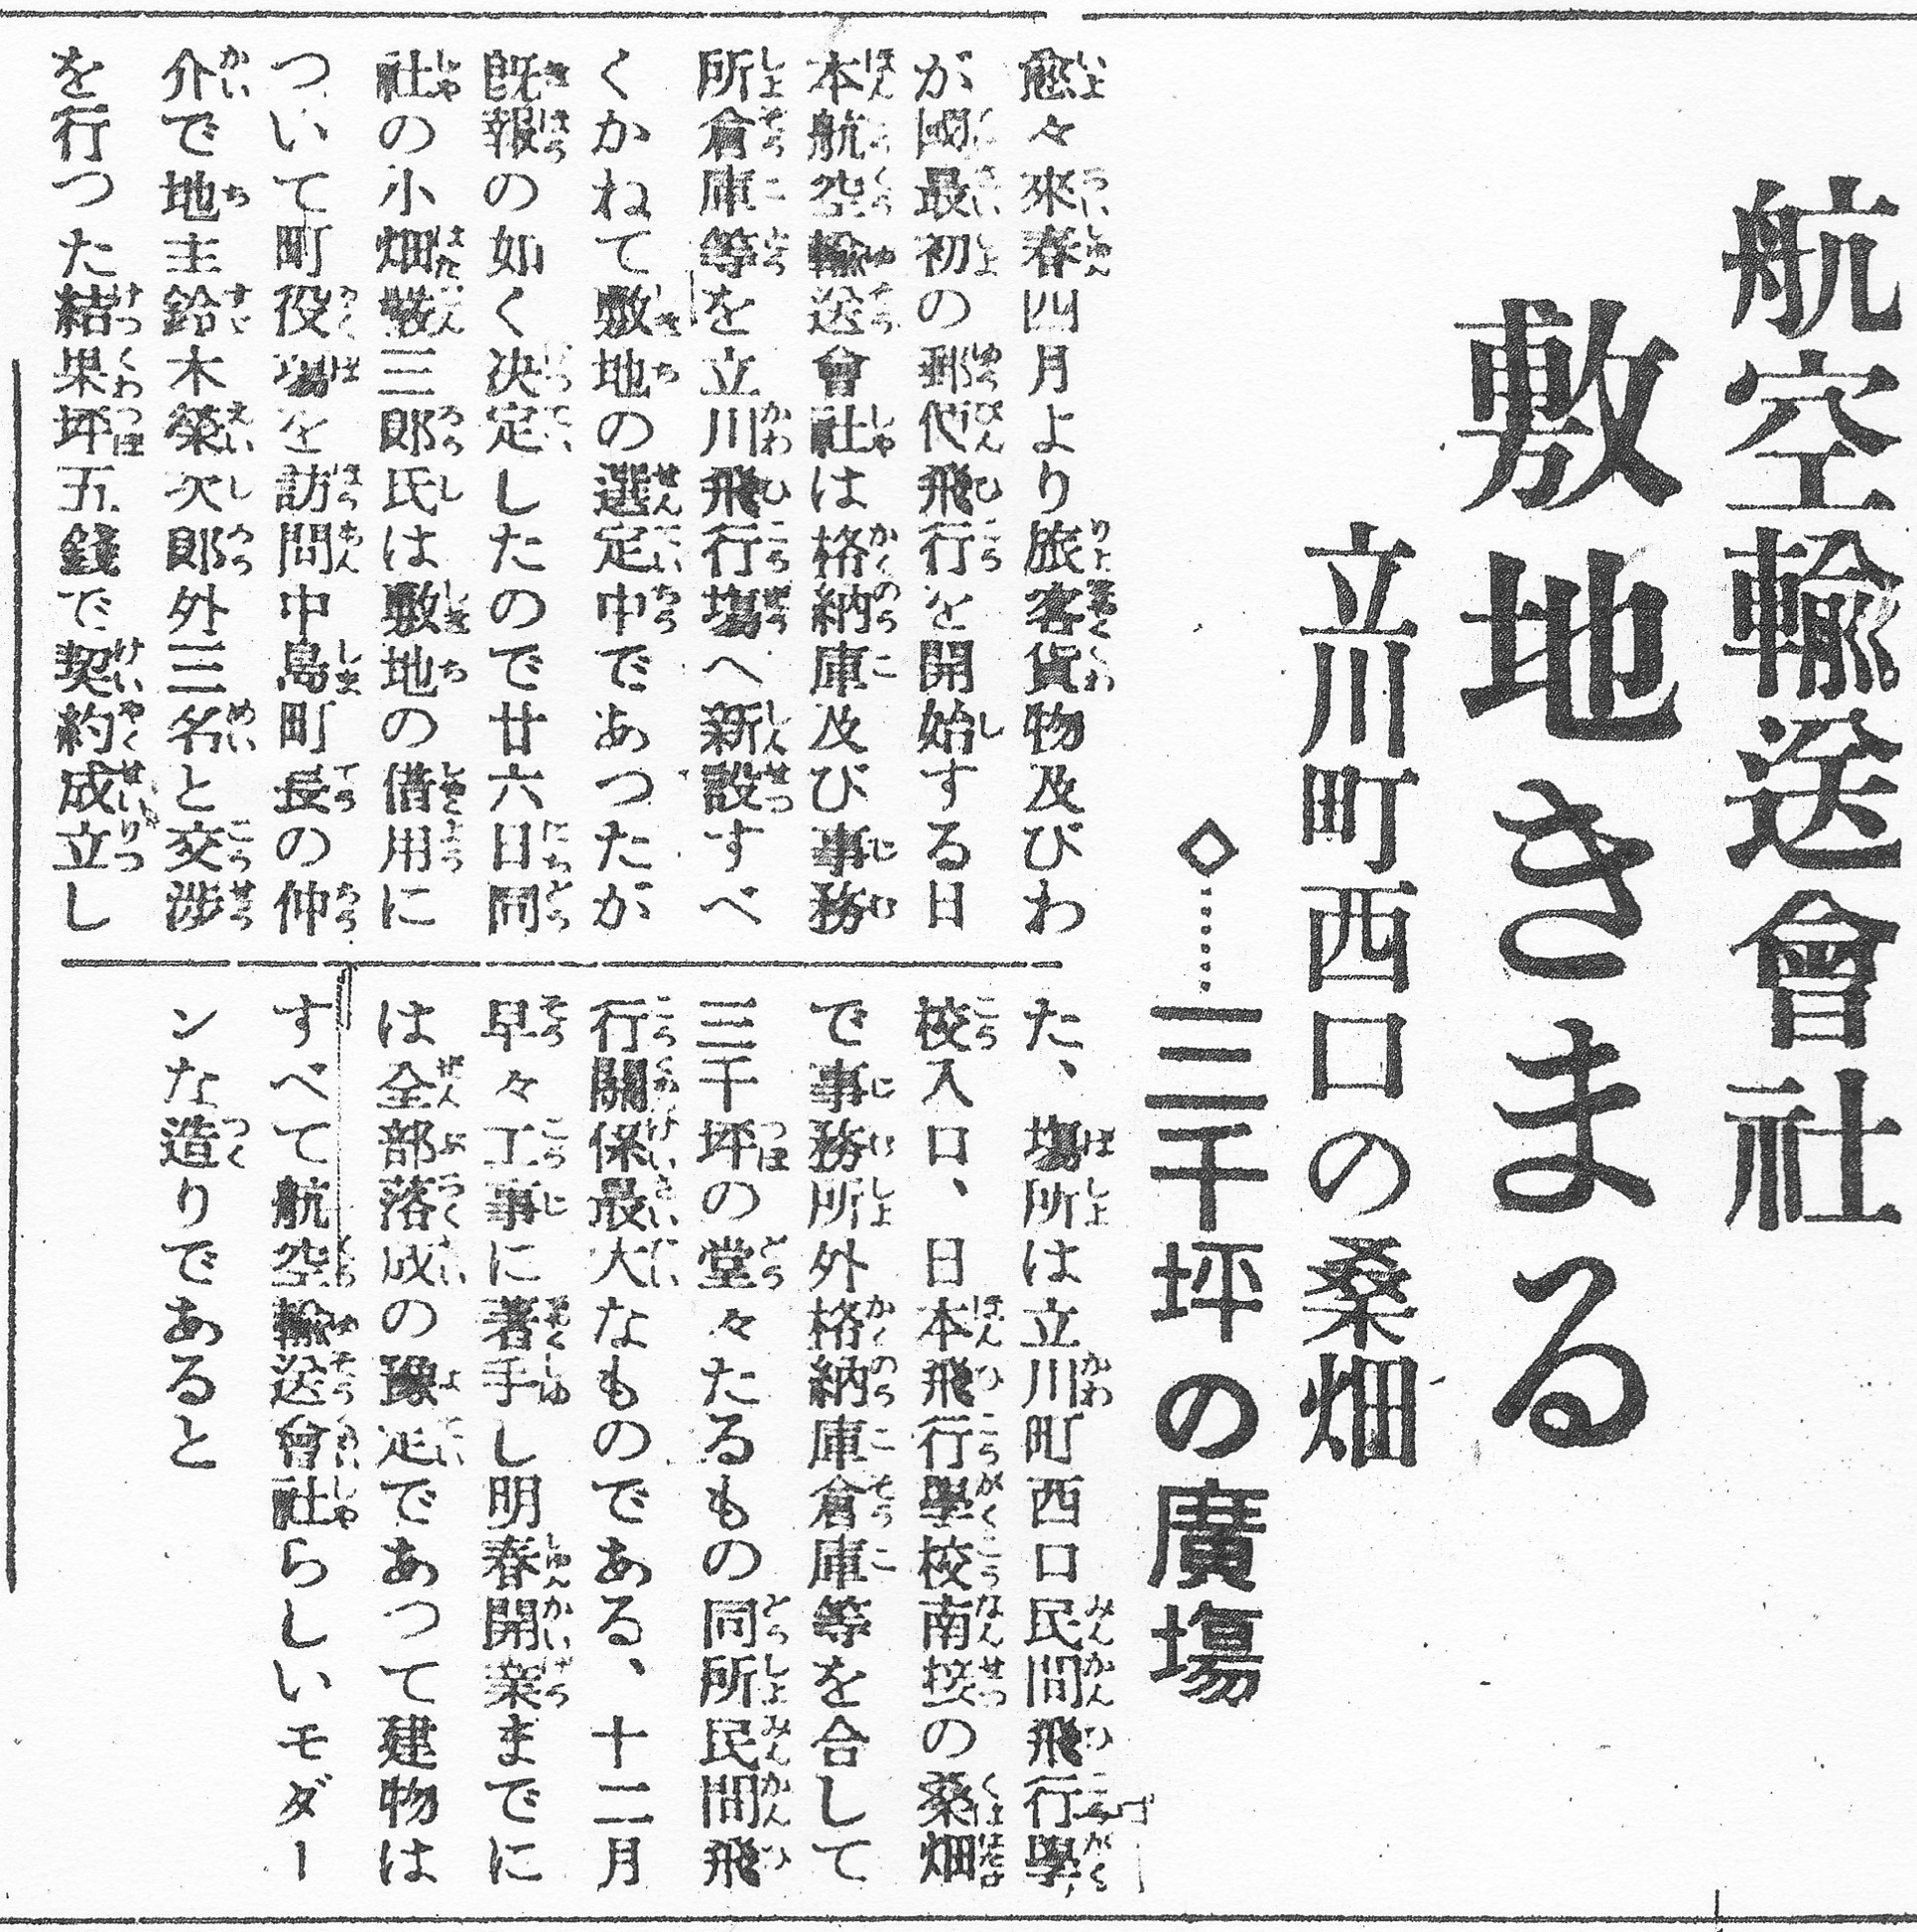 航空輸送會社
敷地きまる
立川町西口の桑畑
◇……三三千坪の廣塲
愈々來春四月より旅客貨物及びわ
が國最初の郵代飛行を開始する日
本航空輸送會社は格納庫及び事務
所倉庫等を立川飛行塲へ新設すべ
くかねて敷地の選定中であつたが
既報の如く決定したので廿六日同
社の小畑巌三郎氏は敷地の借用に
ついて町役塲を訪問中島町長の仲
介で地主鈴木榮次郎外三名と交渉
を行つた結果坪五錢で契約成立し
た、塲所は立川町西口民間飛行學
校入口、日本飛行學校南接の桑畑
で事務所外格納庫倉庫等を合して
三千坪の堂々たるもの同所民間飛
行關係最大なものである、十二月
早々工事に著手し明春開業までに
は全部落成の豫定であつて建物は
すべて航空輸送會社らしいモダー
ンな造りであると